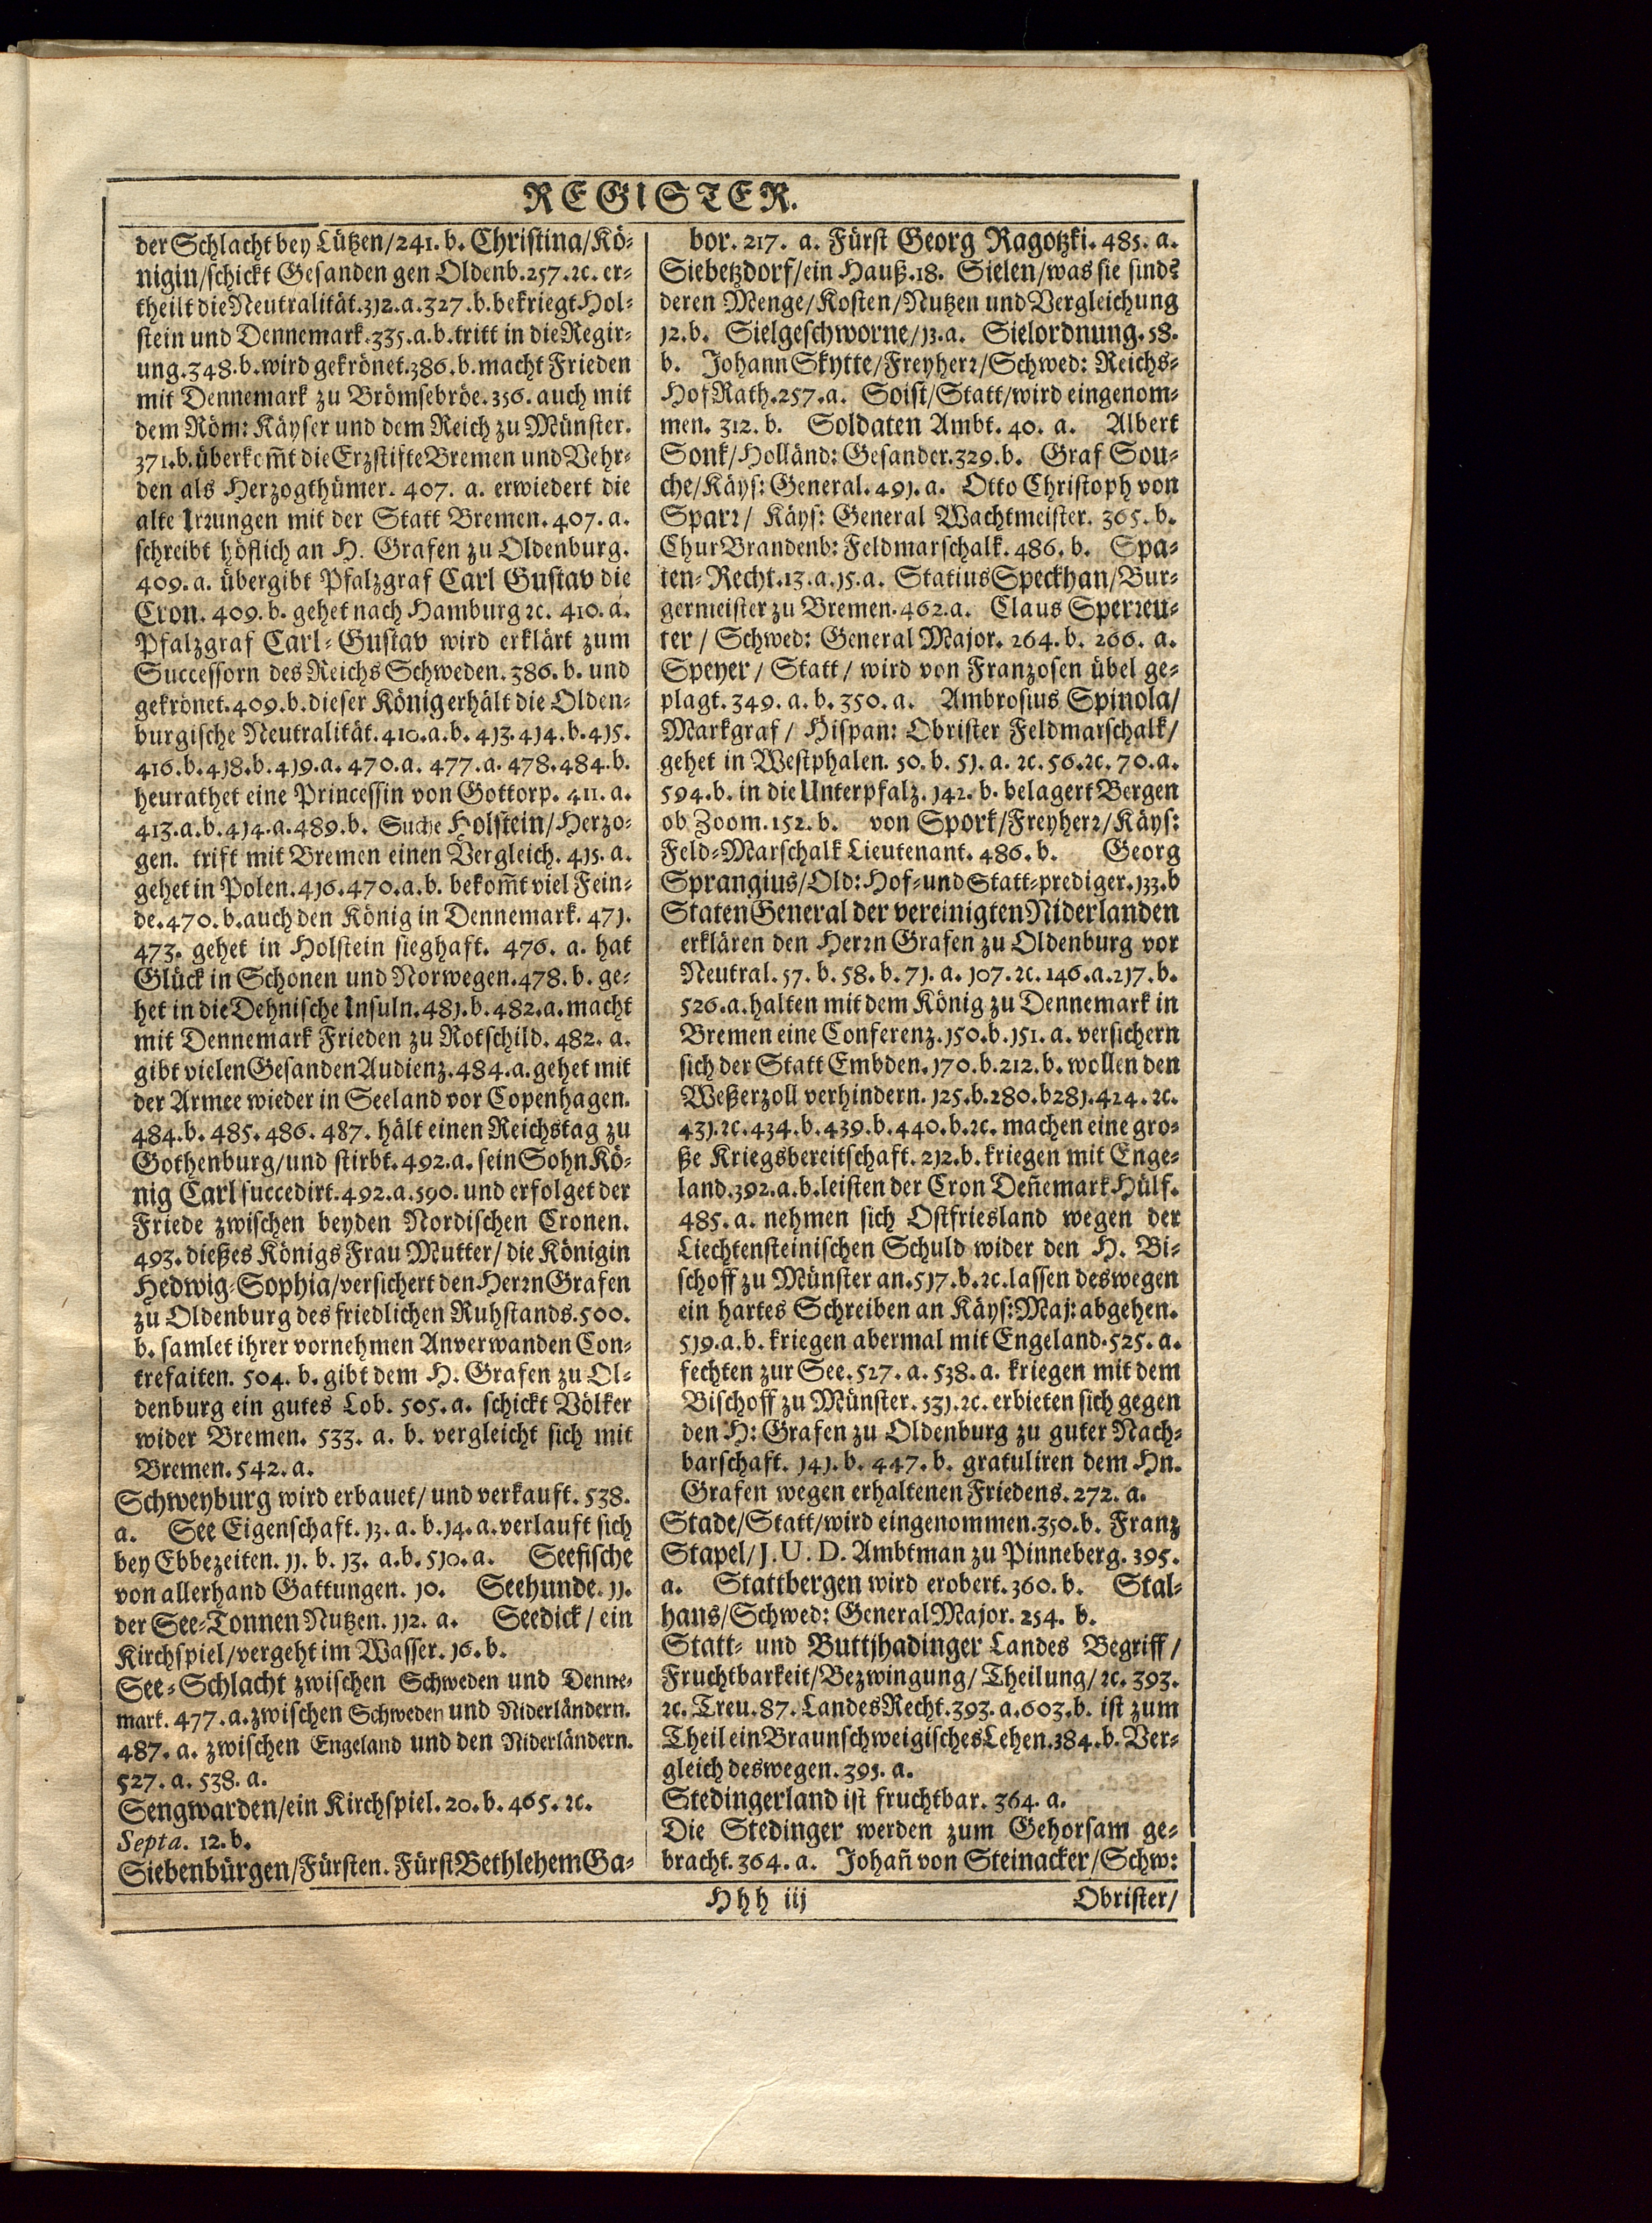 REGISTER.
der Schlacht bey Lützen/241. b. Christina/Kö-
nigin/schickt Gesanden gen Oldenb.257.ꝛc. er-
theilt die Neutralität.312.a.327.b.bekriegt Hol-
stein und Dennemark.335.a.b.tritt in die Regir-
ung.348.b.wird gekrönet.386.b.macht Frieden
mit Dennemark zu Brömsebröe.356. auch mit
dem Röm: Käyser und dem Reich zu Münster.
371.b.überkom̃t die Erzstifte Bremen und Vehr-
den als Herzogthümer. 407. a. erwiedert die
alte Irꝛungen mit der Statt Bremen. 407. a.
schreibt höflich an H. Grafen zu Oldenburg.
409. a. übergibt Pfalzgraf Carl Gustav die
Cron. 409. b. gehet nach Hamburg ꝛc. 410. a.
Pfalzgraf Carl-Gustav wird erklärt zum
Successorn des Reichs Schweden. 386. b. und
gekrönet.409.b.dieser König erhält die Olden-
burgische Neutralität.410.a.b.413.414.b.415.
416.b.418.b.419.a.470.a. 477.a.478.484.b.
heurathet eine Princessin von Gottorp. 411. a.
413.a.b.414.a.489.b. Suche Holstein/Herzo-
gen. trift mit Bremen einen Vergleich. 415. a.
gehet in Polen.416.470.a.b. bekom̃t viel Fein-
de.470.b.auch den König in Dennemark. 471.
473. gehet in Holstein sieghaft. 476. a. hat
Glück in Schonen und Norwegen.478. b. ge-
het in die Dehnische Insuln.481.b.482.a.macht
mit Dennemark Frieden zu Rotschild. 482. a.
gibt vielen Gesanden Audienz.484.a.gehet mit
der Armee wieder in Seeland vor Copenhagen.
484.b. 485. 486. 487. hält einen Reichstag zu
Gothenburg/und stirbt.492.a. sein Sohn Kö-
nig Carl succedirt.492.a.590. und erfolget der
Friede zwischen beyden Nordischen Cronen.
493. dießes Königs Frau Mutter/die Königin
Hedwig-Sophia/versichert den Herꝛn Grafen
zu Oldenburg des friedlichen Ruhstands.500.
b. samlet ihrer vornehmen Anverwanden Con-
trefaiten. 504. b. gibt dem H. Grafen zu Ol-
denburg ein gutes Lob. 505. a. schickt Völker
wider Bremen. 533. a. b. vergleicht sich mit
Bremen. 542. a.
Schweyburg wird erbauet/ und verkauft. 538.
a. See Eigenschaft. 13. a. b. 14. a. verlauft sich
bey Ebbezeiten. 11. b. 13. a.b. 510. a. Seefische
von allerhand Gattungen. 10. Seehunde. 11.
der See-Tonnen Nutzen. 112. a. Seedick/ ein
Kirchspiel/vergeht im Wasser. 16. b.
See-Schlacht zwischen Schweden und Denne-
mark. 477. a. zwischen Schweden und Niderländern.
487. a. zwischen Engeland und den Niderländern.
527. a. 538. a.
Sengwarden/ein Kirchspiel. 20. b. 465. ꝛc.
Septa. 12. b.
Siebenbürgen/Fürsten. Fürst Bethlehem Ga-
bor. 217. a. Fürst Georg Ragotzki. 485. a.
Siebetzdorf/ein Hauß.18. Sielen/was sie sind?
deren Menge/Kosten/Nutzen und Vergleichung
12.b. Sielgeschworne/13.a. Sielordnung.58.
b. Johann Skytte/Freyherꝛ/Schwed: Reichs-
HofRath.257.a. Soist/Statt/wird eingenom-
men. 312. b. Soldaten Ambt. 40. a. Albert
Sonk/Holländ: Gesander.329.b. Graf Sou-
che/Käys: General. 491. a. Otto Christoph von
Sparꝛ/ Käys: General Wachtmeister. 365. b.
ChurBrandenb: Feldmarschalk. 486. b. Spa-
ten-Recht.13.a.15.a. Statius Speckhan/Bur-
germeister zu Bremen.462.a. Claus Sperꝛeu-
ter / Schwed: General Major. 264. b. 266. a.
Speyer/ Statt/ wird von Franzosen übel ge-
plagt. 349. a. b. 350. a. Ambrosius Spinola/
Markgraf / Hispan: Obrister Feldmarschalk/
gehet in Westphalen. 50. b. 51. a. ꝛc. 56.ꝛc. 70.a.
594.b. in die Unterpfalz. 142. b. belagert Bergen
ob Zoom.152. b. von Spork/Freyherꝛ/Käys:
Feld-Marschalk Lieutenant. 486. b. Georg
Sprangius/Old: Hof-und Statt-prediger.133.b
Staten General der vereinigten Niderlanden
erklären den Herꝛn Grafen zu Oldenburg vor
Neutral. 57. b. 58. b. 71. a. 107. ꝛc. 146.a.217.b.
526.a.halten mit dem König zu Dennemark in
Bremen eine Conferenz.150.b.151. a. versichern
sich der Statt Embden.170.b.212.b. wollen den
Weßerzoll verhindern. 125.b.280.b281.424. ꝛc.
431.ꝛc.434.b.439.b.440.b.ꝛc. machen eine gro-
ße Kriegsbereitschaft. 212.b. kriegen mit Enge-
land.392.a.b.leisten der Cron Deñemark Hülf.
485. a. nehmen sich Ostfriesland wegen der
Liechtensteinischen Schuld wider den H. Bi-
schoff zu Münster an.517.b.ꝛc.lassen deswegen
ein hartes Schreiben an Käys: Maj: abgehen.
519.a.b. kriegen abermal mit Engeland.525. a.
fechten zur See. 527. a. 538. a. kriegen mit dem
Bischoff zu Münster. 531. ꝛc. erbieten sich gegen
den H: Grafen zu Oldenburg zu guter Nach-
barschaft. 141. b. 447. b. gratuliren dem Hn.
Grafen wegen erhaltenen Friedens. 272. a.
Stade/Statt/wird eingenommen.350.b. Franz
Stapel/J. U. D. Ambtman zu Pinneberg. 395.
a. Stattbergen wird erobert. 360. b. Stal-
hans/Schwed: General Major. 254. b.
Statt- und Buttjhadinger Landes Begriff/
Fruchtbarkeit/Bezwingung/Theilung/ꝛc. 393.
ꝛc. Treu. 87. Landes Recht.393.a.603.b. ist zum
Theil ein Braunschweigisches Lehen.384.b. Ver-
gleich deswegen. 395. a.
Stedingerland ist fruchtbar. 364. a.
Die Stedinger werden zum Gehorsam ge-
bracht. 364. a. Johañ von Steinacker/Schw:
Hhh iij
Obrister/